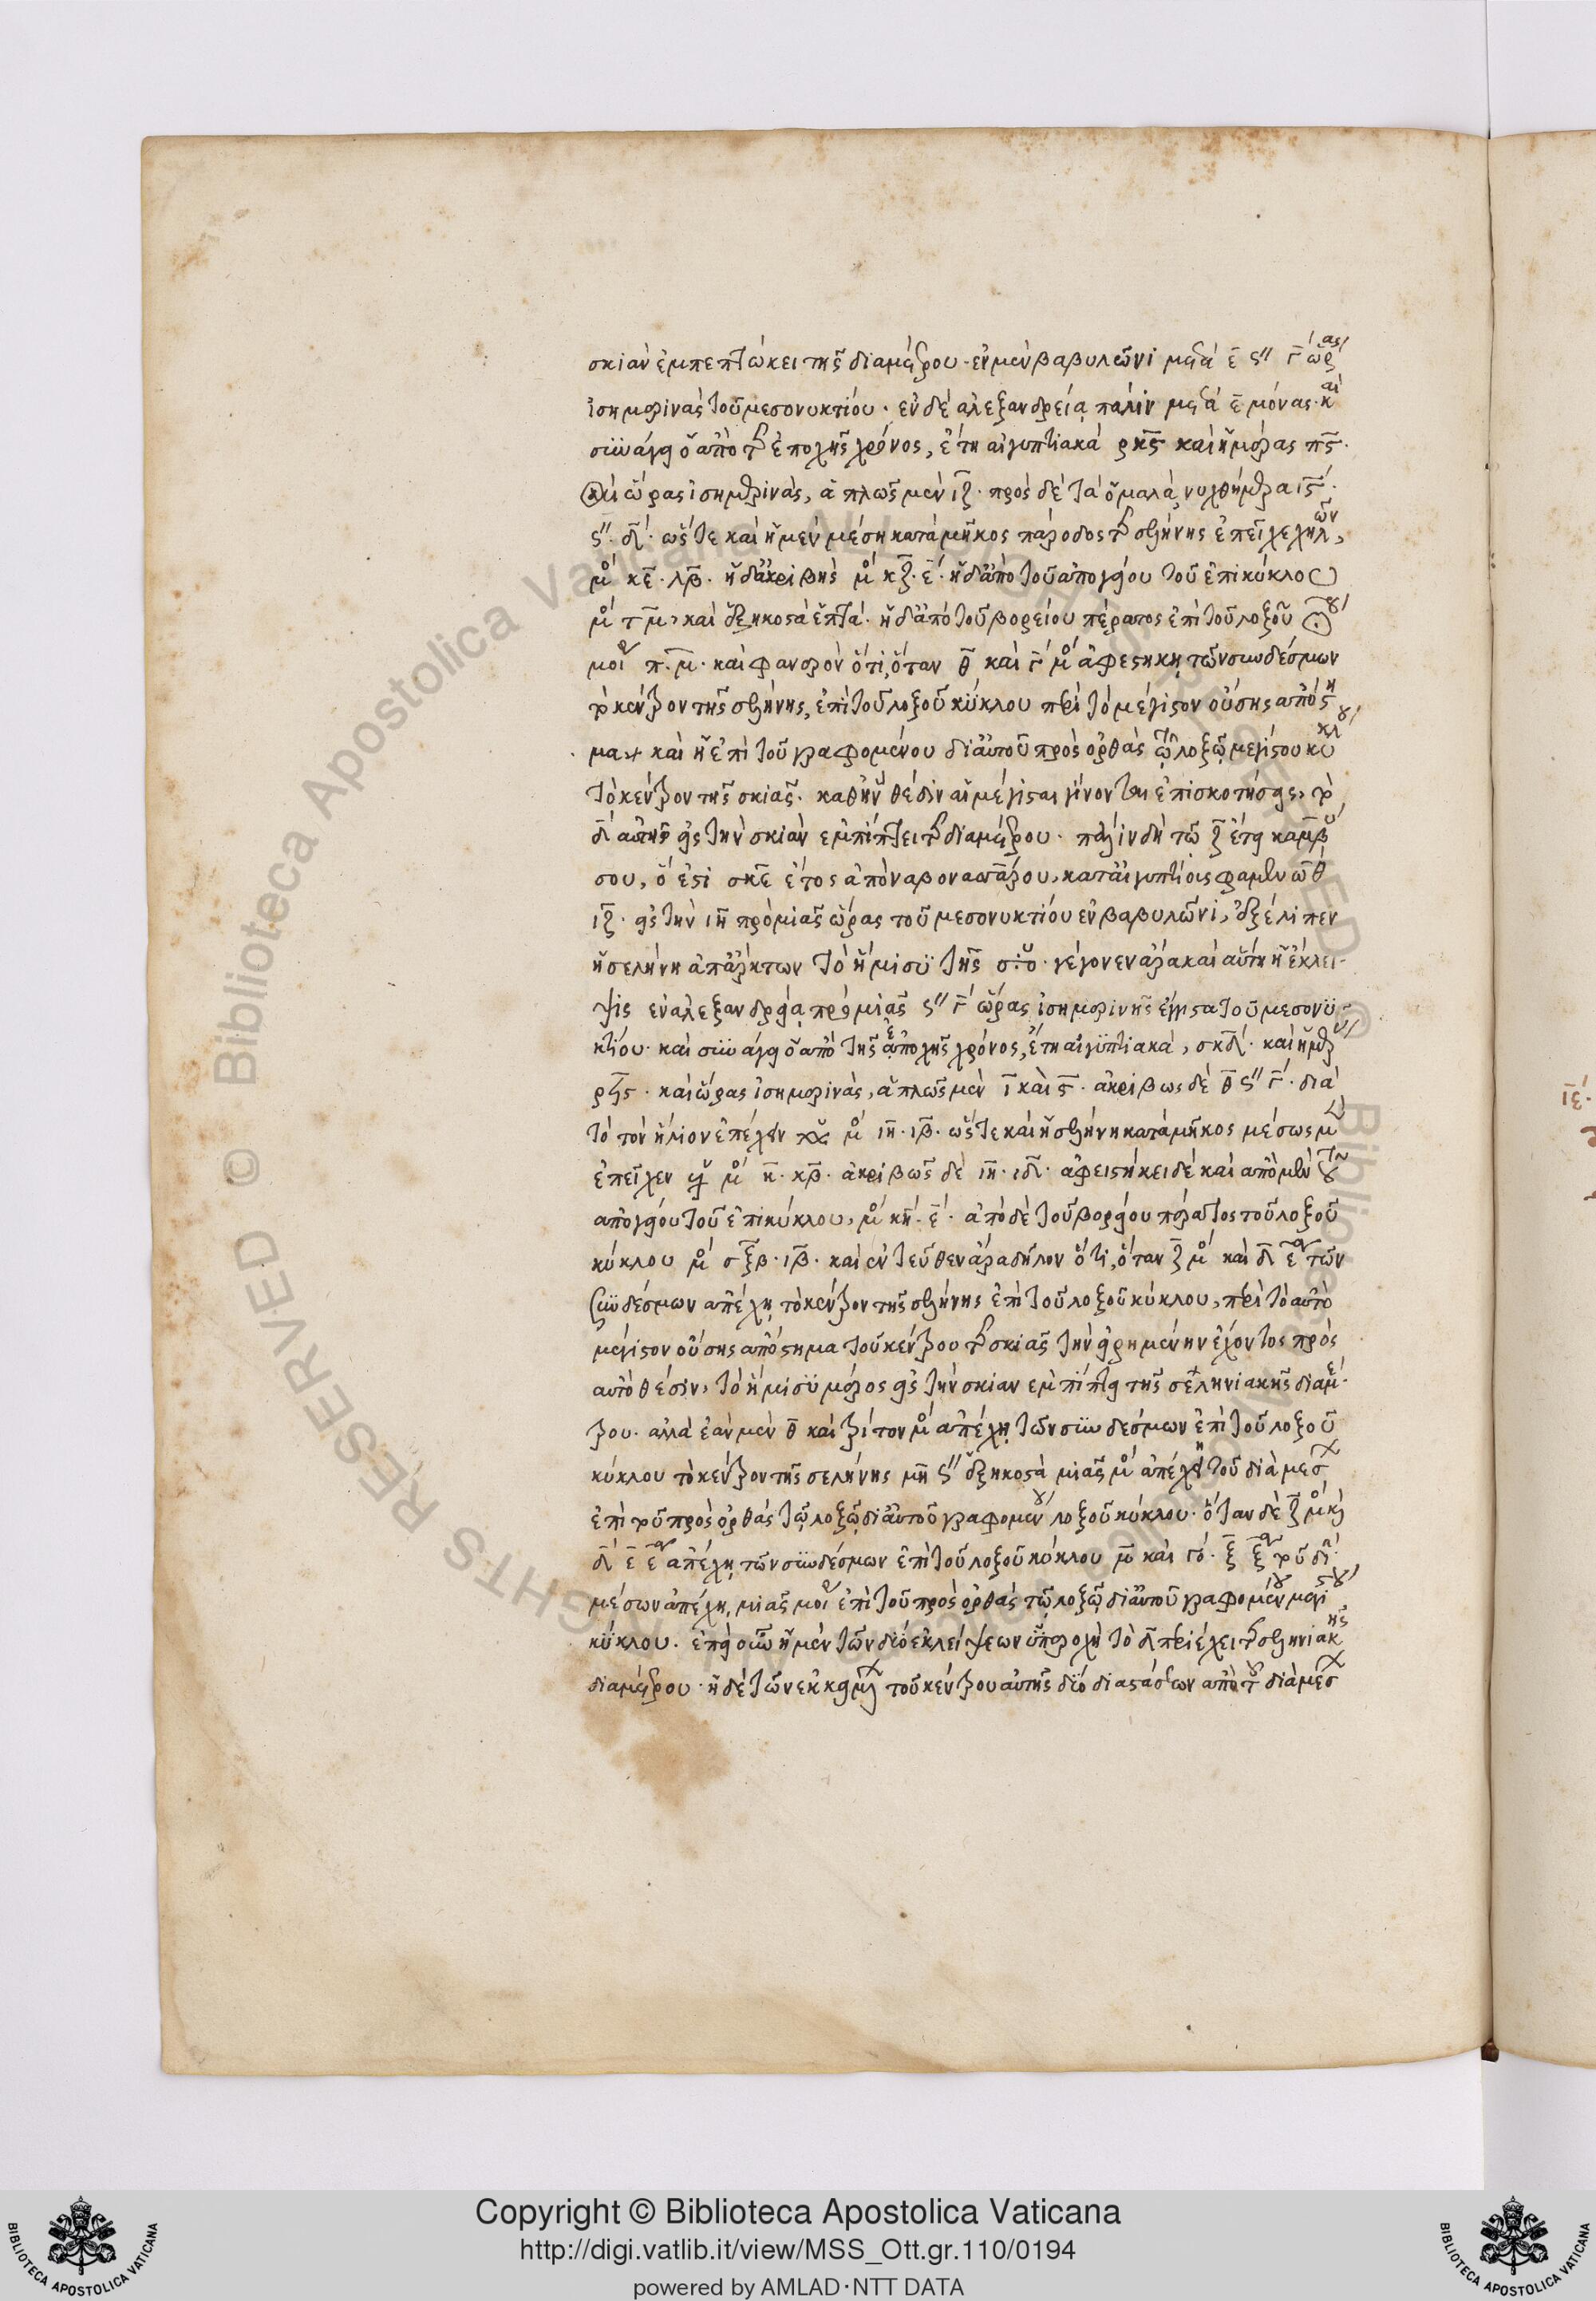 σκιὰν ἐμπεπτώκει τῆς διαμέτρου· ἐν μὲν βαβυλῶνι μετὰ ε̄ ς΄΄ γ΄ ὥρας
ἰσημερινὰς τοῦ μεσονυκτίου· ἐν δὲ ἀλεξανδρείᾳ πάλιν μετὰ ε̄ μόνας· καὶ
συνάγει ὁ ἀπὸ τῆς ἐποχῆς χρόνος, ἔτη αἰγυπτιακὰ ρκϛ καὶ ἡμέρας πϛ·
καὶ ὥρας ἰσημερινὰς, ἁπλῶς μὲν ιζ· πρὸς δὲ τὰ ὁμαλὰ νυχθήμερα ιϛ·
ς΄΄ δ΄· ὥστε καὶ ἡ μὲν μέση κατὰ μῆκος πάροδος τῆς σελήνης ἐπεῖχε χηλῶν,
μ̊ κε· λβ· ἡ δ' ἀκριβὴς μ̊ κζ· ε· ἡ δ' ἀπὸ τοῦ ἀπογείου τοῦ ἐπικύκλου
μ̊ τμ, καὶ ἑξηκοστὰ ἑπτά· ἡ δ' ἀπὸ τοῦ βορείου πέρατος ἐπὶ τοῦ λοξοῦ
μοι π· μ· καὶ φανερὸν ὅτι, ὅταν θ καὶ γ΄ μ̊ ἀφεστήκῃ τῶν συνδέσμων
τὸ κέντρον τῆς σελήνης, ἐπὶ τοῦ λοξοῦ κύκλου περὶ τὸ μέγιστον οὔσης ἀπόστη
μα + καὶ ἢ ἐπὶ τοῦ γραφομένου δι' αὐτοῦ πρὸς ὀρθὰς τῷ λοξῷ μεγίστου κύκλου
τὸ κέντρον τῆς σκιᾶς· καθ' ἣν θέσιν αἱ μέγισται γίνονται ἐπισκοτήσεις, τὸ
δ΄ αὐτῆς εἰς τὴν σκιὰν ἐμπίπτει τῆς διαμέτρου· πάλιν δὴ τῷ ζ ἔτει καμβύ
σου, ὅ ἐστι σκε ἔτος ἀπὸ ναβονασσάρου, κατ' αἰγυπτίους φαμενὼθ
ιζ· εἰς τὴν ιη πρὸ μιᾶς ὥρας τοῦ μεσονυκτίου ἐν βαβυλῶνι, ἐξέλιπεν
ἡ σελήνη ἀπ' ἄρκτων τὸ ἥμισυ τῆς γέγονεν ἄρα καὶ αὕτη ἡ ἔκλει-
ψις ἐν ἀλεξανδρείᾳ πρὸ μιᾶς ς΄΄ γ΄ ὥρας ἰσημερινῆς ἔγγιστα τοῦ μεσονυ
κτίου· καὶ συνάγει ὁ ἀπὸ τῆς ἐποχῆς χρόνος, ἔτη αἰγυπτιακὰ, σκδ· καὶ ἡμέρας
ρϟϛ· καὶ ὥρας ἰσημερινὰς, ἁπλῶς μὲν ι καὶ ϛ· ἀκριβῶς δὲ θ ς΄΄ γ΄· διὰ
τὸ τὸν ἥλιον ἐπέχειν μ̊ ιη· ιβ· ὥστε καὶ ἡ σελήνη κατὰ μῆκος μέσως μὲν
ἐπεῖχεν μ̊ κ· κβ· ἀκριβῶς δὲ ιη· ιδ· ἀφειστήκει δὲ καὶ ἀπὸ μὲν τοῦ
ἀπογείου τοῦ ἐπικύκλου, μ̊ κη· ε· ἀπὸ δὲ τοῦ βορείου πέρατος τοῦ λοξοῦ
κύκλου μ̊ σξβ· ιβ· καὶ ἐντεῦθεν ἄρα δῆλον ὅτι, ὅταν ζ μ̊ καὶ δ ε τῶν
συνδέσμων ἀπέχῃ τὸ κέντρον τῆς σελήνης ἐπὶ τοῦ λοξοῦ κύκλου, περὶ τὸ αὐτὸ
μέγιστον οὔσης ἀπόστημα τοῦ κέντρου τῆς σκιᾶς τὴν εἰρημένην ἔχοντος πρὸς
αὐτὸ θέσιν, τὸ ἥμισυ μέρος εἰς τὴν σκιὰν ἐμπίπτει τῆς σεληνιακῆς διαμέ·
τρου· ἀλλὰ ἐὰν μὲν θ καὶ τρίτον μ̊ ἀπέχῃ τῶν συνδέσμων ἐπὶ τοῦ λοξοῦ
κύκλου τὸ κέντρον τῆς σελήνης μη ς΄΄ ἑξηκοστὰ μιᾶς μ̊ ἀπέχει τοῦ διὰ μέσων
ἐπὶ τοῦ πρὸς ὀρθὰς τῷ λοξῷ δι' αὐτοῦ γραφομένου λοξοῦ κύκλου· ὅταν δὲ ζ μ̊ καὶ
δ΄ ε ἀπέχῃ τῶν συνδέσμων ἐπὶ τοῦ λοξοῦ κύκλου μ καὶ γό· ξ ξ τοῦ διὰ
μέσων ἀπέχῃ, μιᾶς μοι ἐπὶ τοῦ πρὸς ὀρθὰς τῷ λοξῷ δι' αὐτοῦ γραφομένου μεγίστου
κύκλου· ἐπεὶ οὖν ἡ μὲν τῶν δύο ἐκλείψεων ὑπεροχὴ τὸ δ περιέχει τῆς σεληνιακῆς
διαμέτρου· ἡ δὲ τῶν ἐκκειμένων τοῦ κέντρου αὐτῆς δύο διαστάσεων ἀπὸ τοῦ διὰ μέσων